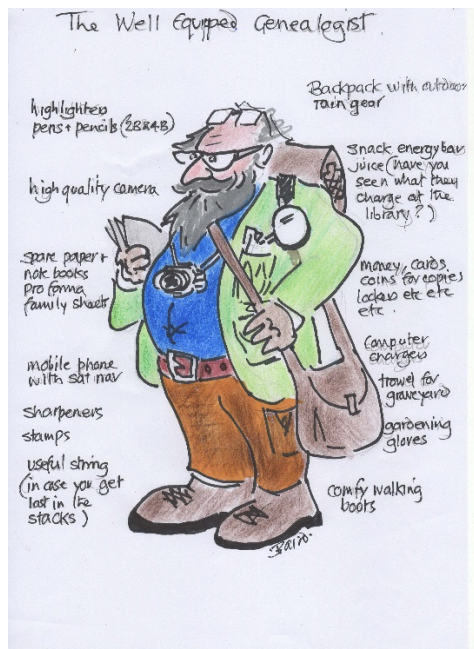 The Well Equipped Genealogist
highlighters
pens + pencils (2B & 4B)
high quality camera
spare paper +
note books
pro forma
family sheets
mobile phone
with sat nav
sharpeners
stamps
useful string
(in case you get
lost in the
stacks)
Backpack with outdoor
rain gear
snack energy bar
juice (have you
seen what they
charge at the
library?)
money, cards,
coins for copies
lockers etc etc
etc.
computer
charger
trowel for
graveyard
gardening
gloves
comfy walking
boots